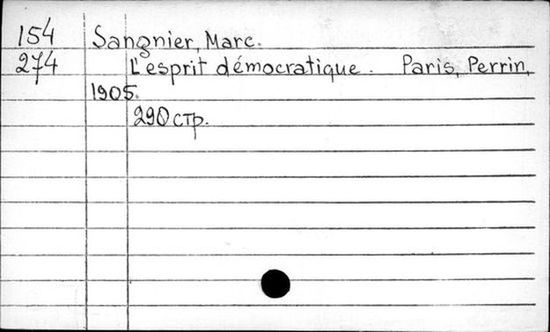 154 Sangnier, Marc.
274 L'esprit démocratique. Paris, Perrin,
1905.
290 стр.